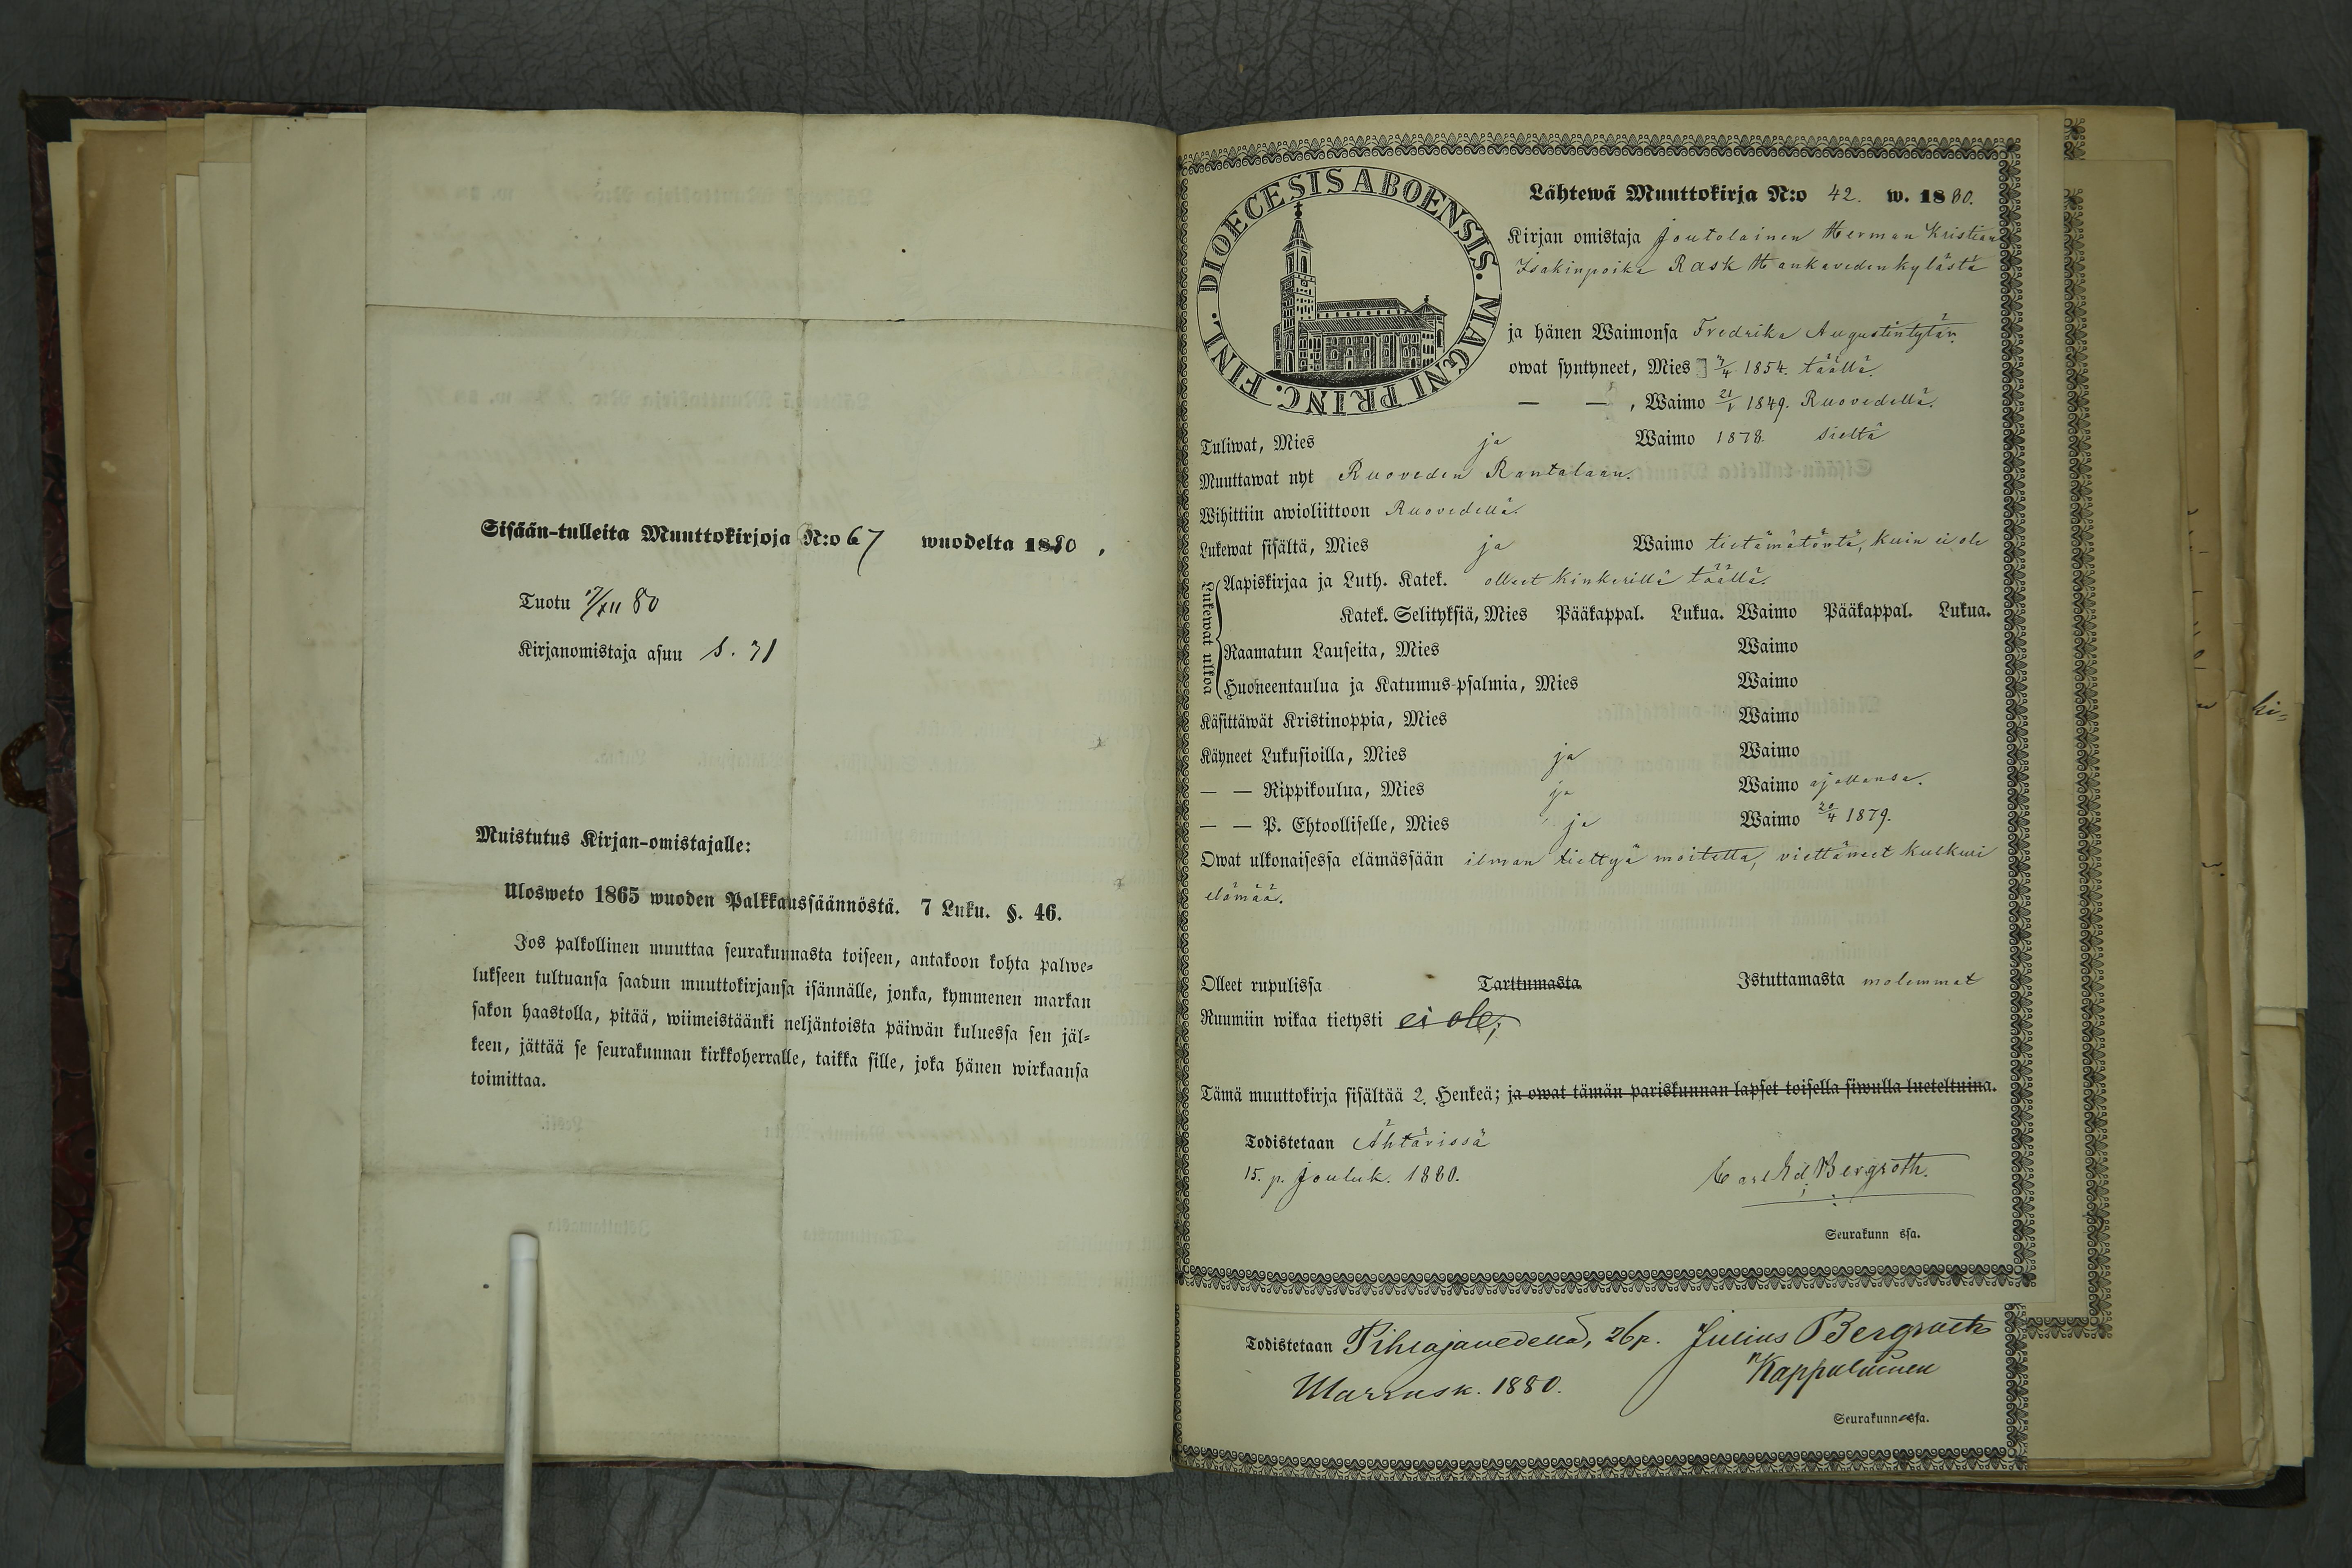 Sisään-tulleita Muuttokirjoja N:o 67 wuodelta 1880.
Tuotu 7/XII 80
Kirjanomistaja asuu S. 71
Muistutus Kirjan-omistajalle:
Ulosweto 1865 wuoden Palkkaussäännöstä. 7 Luku. §. 46.
Jos palkollinen muuttaa seurakunnasta toiseen, antakoon kohta palwe-
lukseen tultuansa saadun muuttokirjansa isännälle, jonka, kymmenen markan
sakon haastolla, pitää, wiimeistäänki neljäntoista päiwän kuluessa sen jäl-
keen, jättää se seurakunnan kirkkoherralle, taikka sille, joka hänen wirkaansa
toimittaa.
DIOECESIS ABOENSIS. MAGNI PRINC. FINL.
Lähtewä Muuttokirja N:o 42. w. 1880.
Kirjan omistaja Joutolainen Herman Kristian
Isakinpoika Rask Hankavedenkylästä
ja hänen Waimonsa Fredrika Augustintytär
owat syntyneet, Mies /4 1854. täällä.
— — , Waimo 21/1 1849. Ruovedellä.
Tuliwat, Mies ja Waimo 1878. sieltä
Muuttawat nyt Ruoveden Rantalaan.
Wihittiin awioliittoon Ruovedellä.
Lukewat sisältä, Mies ja Waimo tietämätöntä, kuin ei ole
Lukewat ulkoa
Aapiskirjaa ja Luth. Katek. olleet kinkerillä täällä.
Katek. Selityksiä, Mies Pääkappal. Lukua. Waimo Pääkappal. Lukua.
Raamatun Lauseita, Mies Waimo
Huoneentaulua ja Katumus-psalmia, Mies Waimo
Käsittäwät Kristinoppia, Mies Waimo
Käyneet Lukusioilla, Mies ja Waimo
— — Rippikoulua, Mies ja Waimo ajallansa.
— — P. Ehtoolliselle, Mies ja Waimo 20/4 1879.
Owat ulkonaisessa elämässään ilman tiettyä moitetta, viettäneet kulkuri
elämää.
Olleet rupulissa Tarttumasta Istuttamasta molemmat
Ruumiin wikaa tietysti ei ole;
Tämä muuttokirja sisältää 2. Henkeä; ja owat tämän pariskunnan lapset toisella siwulla lueteltuina.
Todistetaan Ähtärissä
15. p. Jouluk. 1880. Carl Ed. Bergroth.
Seurakunn ssa.
Todistetaan Pihlajavedellä, 26 p. Julius Bergroth
Marrask. 1880. Kappalainen
Seurakunn ssa.